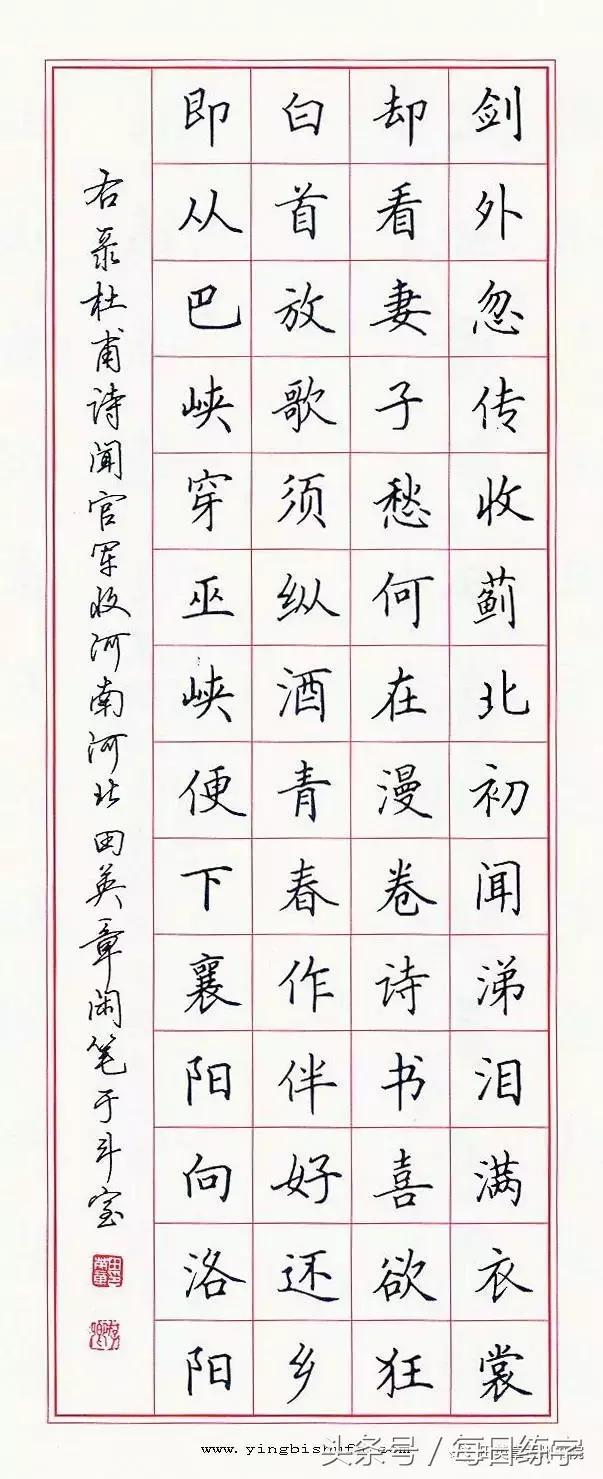 剑外忽传收蓟北初闻涕泪满衣裳
却看妻子愁何在漫卷诗书喜欲狂
白首放歌须纵酒青春作伴好还乡
即从巴峡穿巫峡便下襄阳向洛阳
右录杜甫诗闻官军收河南河北田英章闲笔于斗室
www.yingbishufa.com
头条号/每日练字